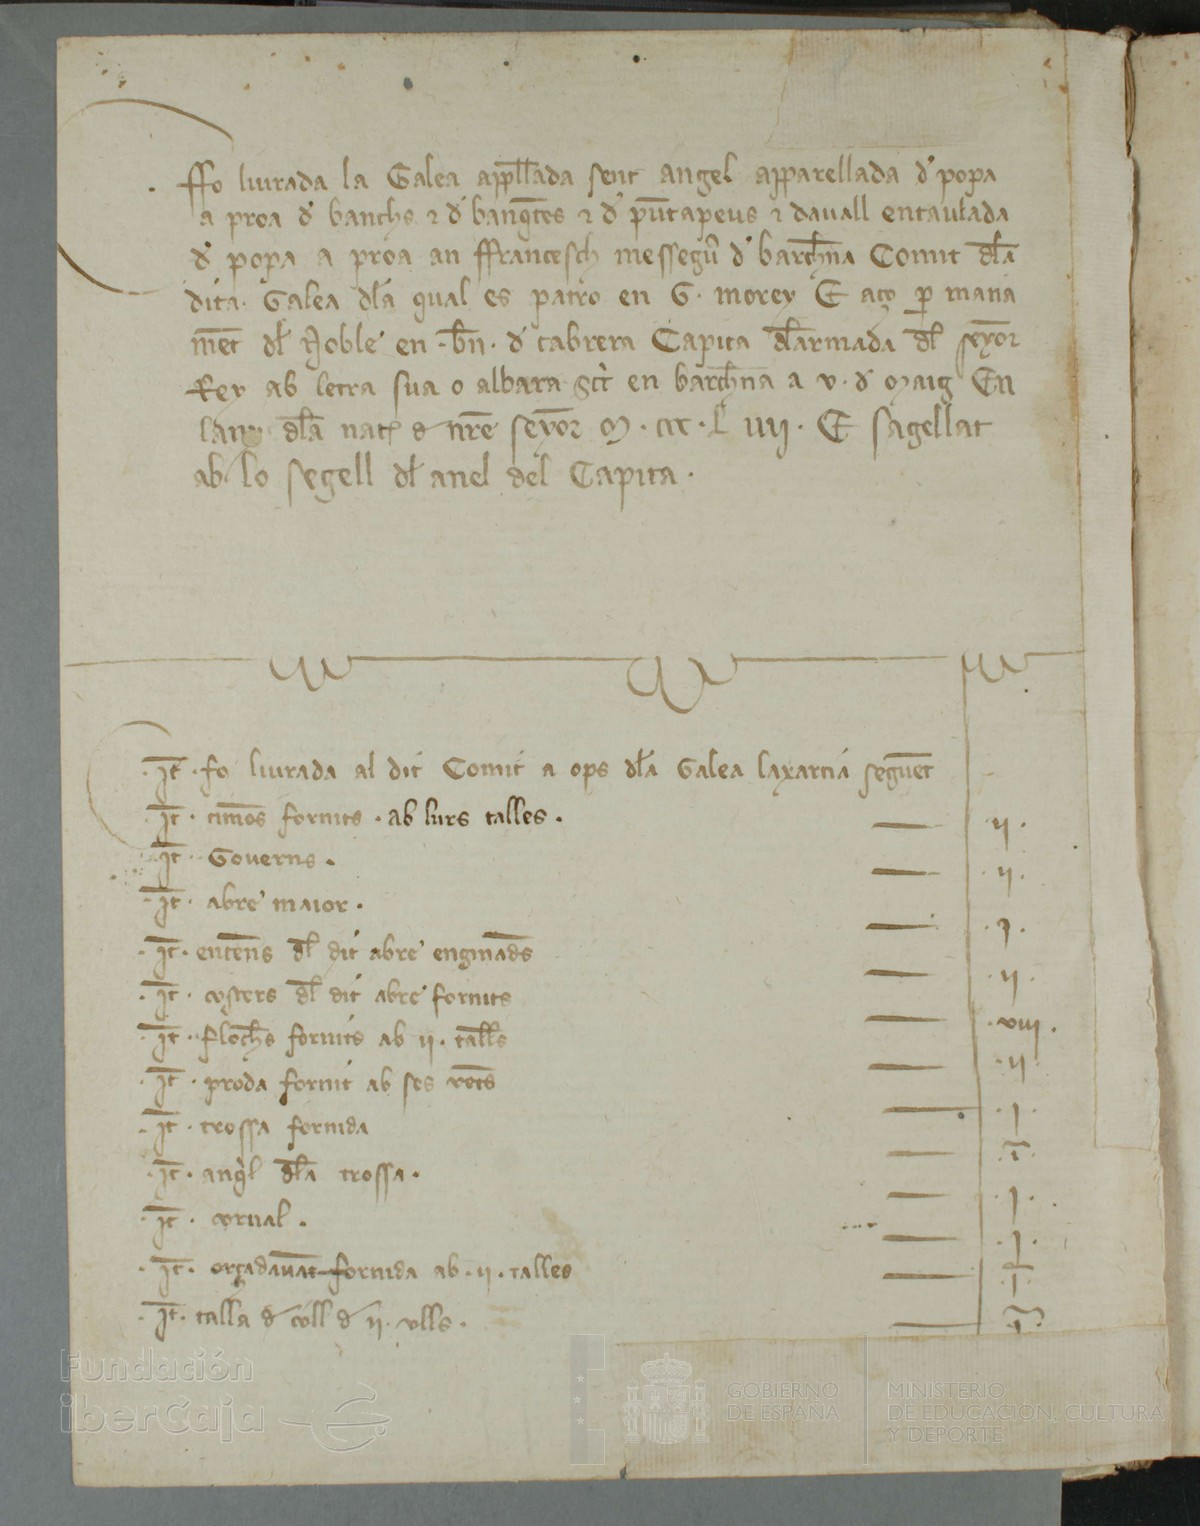 ffo liurada la Galea appll̄ada sent angel apparellada d' popa
a proa d' banchs ⁊ d' banq̄tes ⁊ d' pūtapeus ⁊ davall entaulada
d' popa a proa an ffrancesch messegu̓ d' barch̄na Comit dl̄a
dita. Galea dl̄a qual es patro en G. morey E aço ꝑ mana
m̄et dl̄ Noble en .bn̄. d' cabrera Capita dl̄armada dl̄ seȳor
Rey ab letra sua o albara en barch̄na a v. d' Maig En
lany dl̄a nat d' nr̄e seȳor M. ccc. L iiij. E sagellat
ab lo segell dl̄ anel del Capita.
.It̄. fo liurada al dit Comit a ops dl̄a Galea laxarcia segūet
.It̄. timōs fornits. ab lurs talles. — ij.
.It̄. Governs. — .ij.
.It̄. abre maior. — .j.
.It̄. entēns dl̄ dit abre enginād̄s — .ij.
.It̄. costers dl̄ dit abre fornits — .viij.
.It̄. floch̄s fornits ab ij. tall̄s — .ij.
.It̄. proda fornit ab ses vet̄s — .j.
.It̄. trossa fornida — .ī.
.It̄. anq̓l dl̄a trossa. — .j.
.It̄. cornal. — .j.
.It̄. orçadauāt fornida ab .ij. talles — ī
.It̄. talla d' coll d' ij. ulls. — ī
Fundación
iberCaja
GOBIERNO
DE ESPAÑA
MINISTERIO
DE EDUCACIÓN, CULTURA
Y DEPORTE